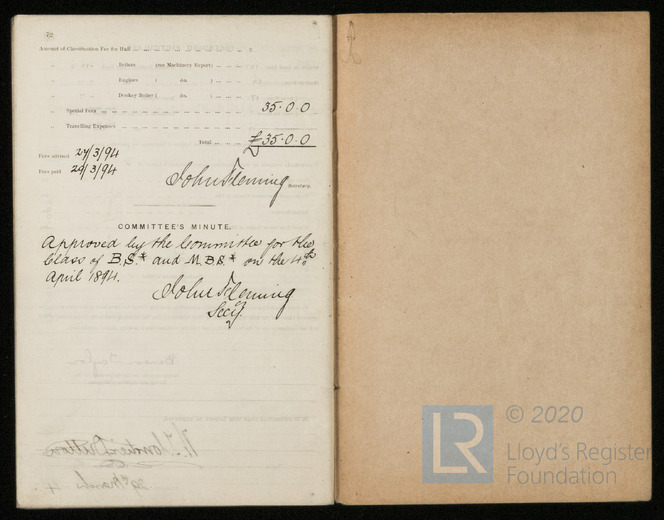 72
Amount of Classification Fee for Hull ... £
" Boilers (see Machinery Report)
" Engines ( do. )
" Donkey Boiler ( do. )
" Special Fees 35.0.0
" Travelling Expenses
Total £35.0.0
Fees advised 27/3/94
Fees paid 29/3/94
John Fleming Secretary.
COMMITTEE'S MINUTE.
Approved by the Committee for the
Class of B.S.* and M.B.S.* on the 4th
April 1894.
John Fleming
Secy.
LR
© 2020
Lloyd's Register
Foundation